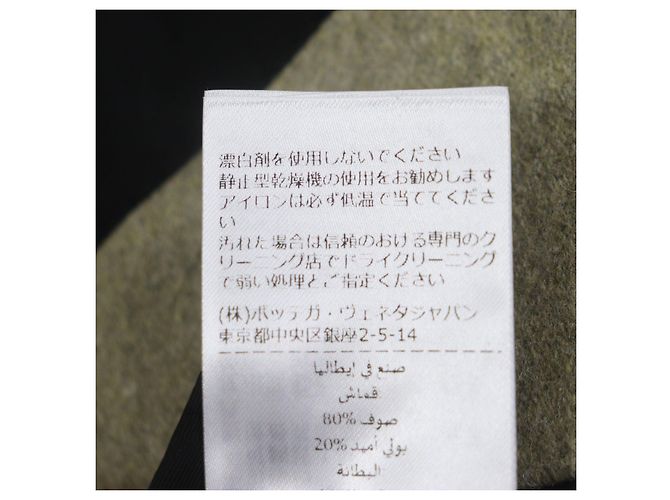 漂白剤を使用しないでください
静止型乾燥機の使用をお勧めします
アイロンは必ず低温で当ててくださ
い
汚れた場合は信頼のおける専門のク
リーニング店でドライクリーニング
で弱い処理とご指定ください
(株)ボッテガ・ヴェネタジャパン
東京都中央区銀座2-5-14
صنع في إيطاليا
قماش
صوف %80
بولي أميد %20
البطانة